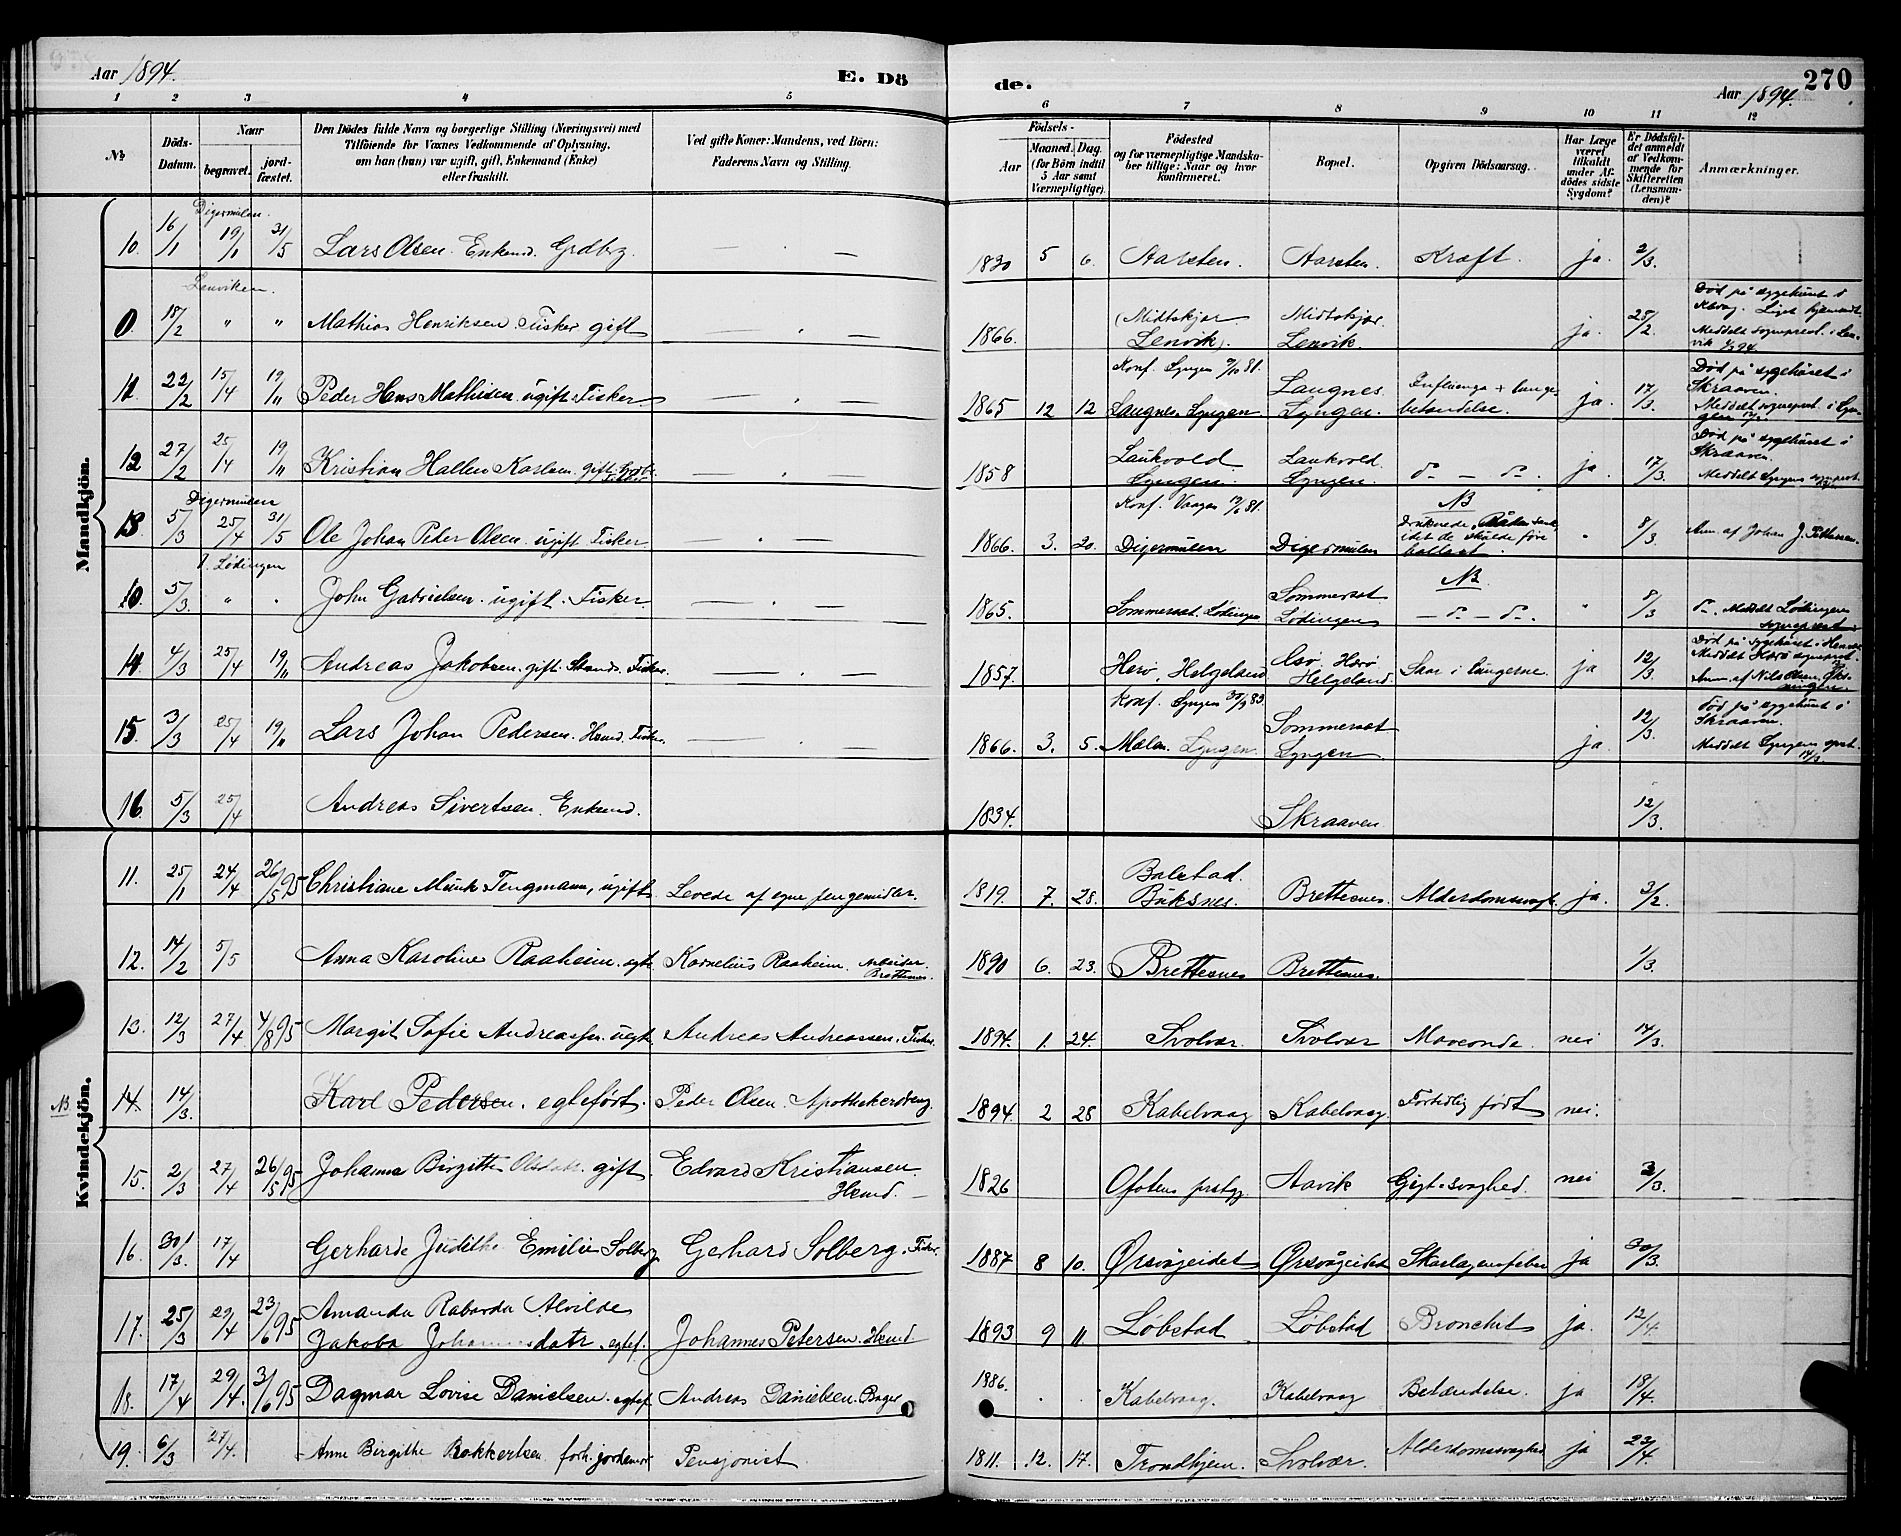 Aar 1894. E. Dö de. Aar 1894. 270
1 2 3 4 5 6 7 8 9 10 11 12
№ Döds-Datum. Naar begravet. jordfæstet. Den Dödes fulde Navn og borgerlige Stilling (Næringsvei) med Tilföiende for Voxnes Vedkommende af Oplysning, om han (hun) var ugift, gift, Enkemand (Enke) eller fraskilt. Ved gifte Koner: Mandens, ved Börn: Faderens Navn og Stilling. Födsels- Aar Maaned. Dag. (for Börn indtil 5 Aar samt Værnepligtige). Födested og for værnepligtige Mandskaber tillige: Naar og hvor konfirmeret. Bopæl. Opgiven Dödsaarsag. Har Læge været tilkaldt under Afdödes sidste Sygdom? Er Dödsfaldet anmeldt af Vedkommende for Skifteretten (Lensmanden)? Anmærkninger.
Mandkjön.
Digermulen.
10. 16/1 19/1 31/5 Lars Olsen. Enkemd. Grdbr. — . — 1830 5 6. Aarsten. Aarsten. Kræft. ja. 2/3.
Lenviken.
0 18/2 " " Mathias Henriksen. Fisker gift — . — 1866. Midtskjær. Lenvik. Midtskjær. Lenvik. ja. 25/2. Död på sygehuset i
Meddelt sogneprest. i Lenvik
11 22/2 15/4 19/11 Peder Hans Mathisen. ugift. Fisker — . — 1865 12 12 Konf. Lyngen 9/10 81. Langnes Lyngen Langnes. Lyngen. Influenza + lungebetændelse. ja. 17/3. Död på sygehuset i Skraaven.
Meddelt sogneprest. i Lyngen
12 27/2 25/4 19/11 Kristian Karlsen. gift — . — 1858 Laukvold Lyngen. Laukvold. Lyngen. do — do. ja. 17/3. Död på sygehuset i Skraaven.
Meddelt Lyngens sogneprest.
Digermulen
13 5/3 25/4 31/5 Ole Johan Peder Olsen. ugift. Fisker. — . — 1866. 3. 20. Konf. Vaagan 81. Digermulen Digermulen NB Druknede. idet de skulde före ballast. " 8/3. Anm. af Johan J.
Lödingen
10. 5/3. " " John Gabrielsen. ugift. Fisker. — . — 1865. Sommerset. Lödingen Sommerset Lödingen NB — do — do. " 8/3 do. Meddelt Lödingens sogneprest
14 4/3 25/4 19/11 Andreas Jakobsen. gift. Strands. Fisker. — . — 1857. Herö, Helgeland Herö Helgeland. Saar i lungerne. ja 12/3. Död på sygehuset i
Meddelt Herö sogneprest.
Anm. af Nils Olsen,
15. 3/3 25/4 19/11 Lars Johan Pedersen. Hsmd. Fisker. — . — 1866. 3. 5. Konf. Lyngen 30/9 83. Lyngen. Sommerset Lyngen ja. 12/3. Död på sygehuset i Skraaven.
Meddelt Lyngens sprst. 14/3
16 5/3 25/4 Andreas Sivertsen. Enkemd. 1834. Skraaven 12/3.
Kvindekjön.
11. 25/1 24/4 26/5 95 Christiane Munk Tengmann, ugift Levede af egne pengemidler. 1819. 7. 28. Balstad. Buksnes. Brettesnes. Alderdomssvagh. ja. 3/2.
12. 14/2 5/5 Anna Karoline Raaheim. egte Kornelius Raaheim. Arbeider Brettesnes. 1890 6. 23. Brettesnes Brettesnes. 1/3.
13. 12/3 27/4 4/8 95 Margit Sofie Andreassen. uegt. Andreas Andreassen. Fisker. 1894. 1. 24. Svolvær. Svolvær nei 17/3.
NB 14. 14/3. Karl Pedersen. egteföd. Peder Olsen. Apothekerdreng. 1894. 2 28 Kabelvaag Kabelvaag. Fortidlig född nei.
15. 2/3 27/4 26/5 95 Johanna Birgitte Olsdatr. gift. Edvard Kristiansen. Hsmd. — 1826 Ofotens prstgj. Aavik Gigtsvaghed. nei 3/3.
16. 30/3. 17/4 Gerharde Judithe Emilie Solberg Gerhard Solberg. Fisker. 1887 8 10. Ørsvågeidet Ørsvågeidet Skarlagensfeber ja 30/3.
17. 25/3 29/4 23/6 95 Amanda Alvilde Jakoba Johannesdatr. egtef. Johannes Petersen. Hsmd. 1893 9 11 Löbstad Löbstad Bronchit ja. 12/4.
18. 17/4 29/4. 3/6 95 Dagmar Lovise Danielsen. egtef. Andreas Danielsen. Bager 1886. . . Kabelvaag. Kabelvaag Betændelse. ja 18/4.
19. 6/3 27/4. Anne Birgithe forh. jordemor Pensjonist 1811. 12. 17. Trondhjem. Svolvær. Alderdomssvaghed ja 23/4.